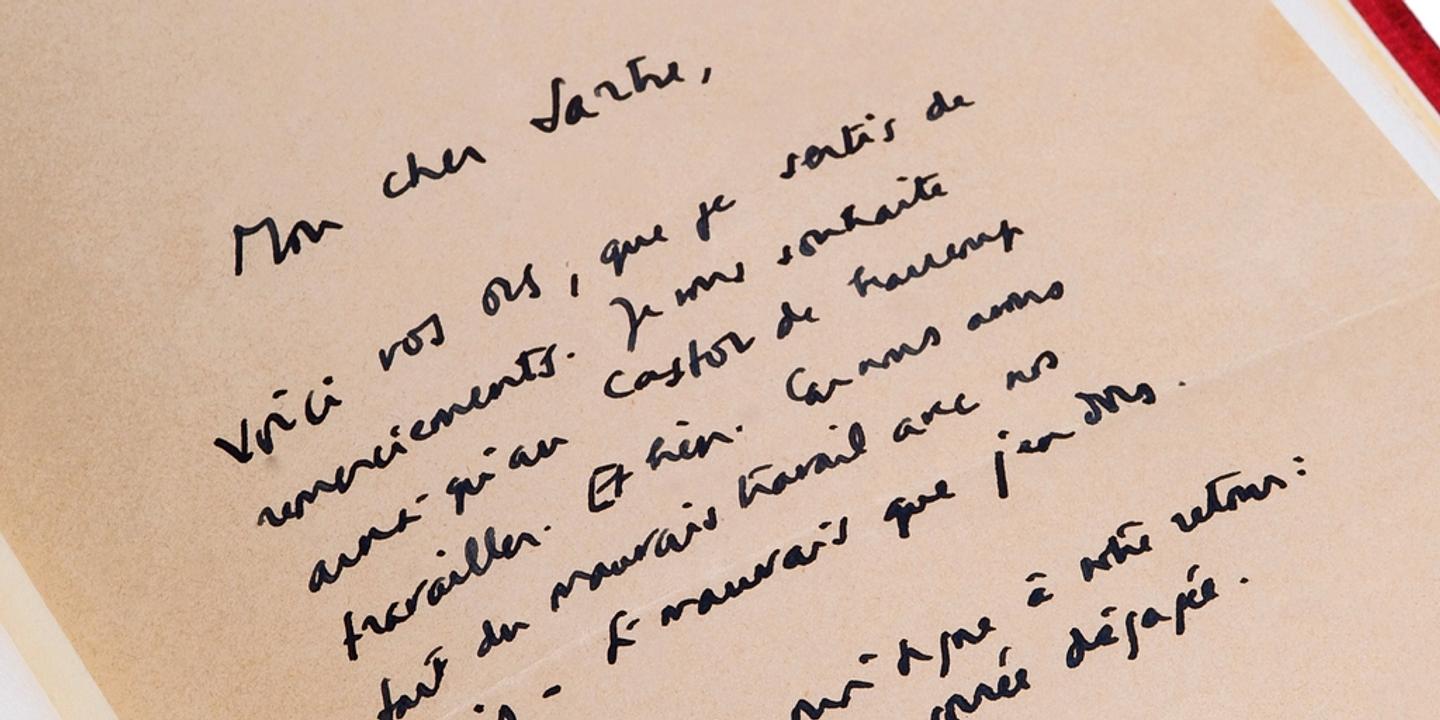 Mon cher Sartre,
Voici vos ors, que je sortis de
remerciements. Je vous souhaite
ainsi qu'au Castor de beaucoup
travailler. Et bien. Car nous avons
fait du mauvais travail avec nos
Si mauvais que j'en dors.
signe à votre retour:
dégagée.